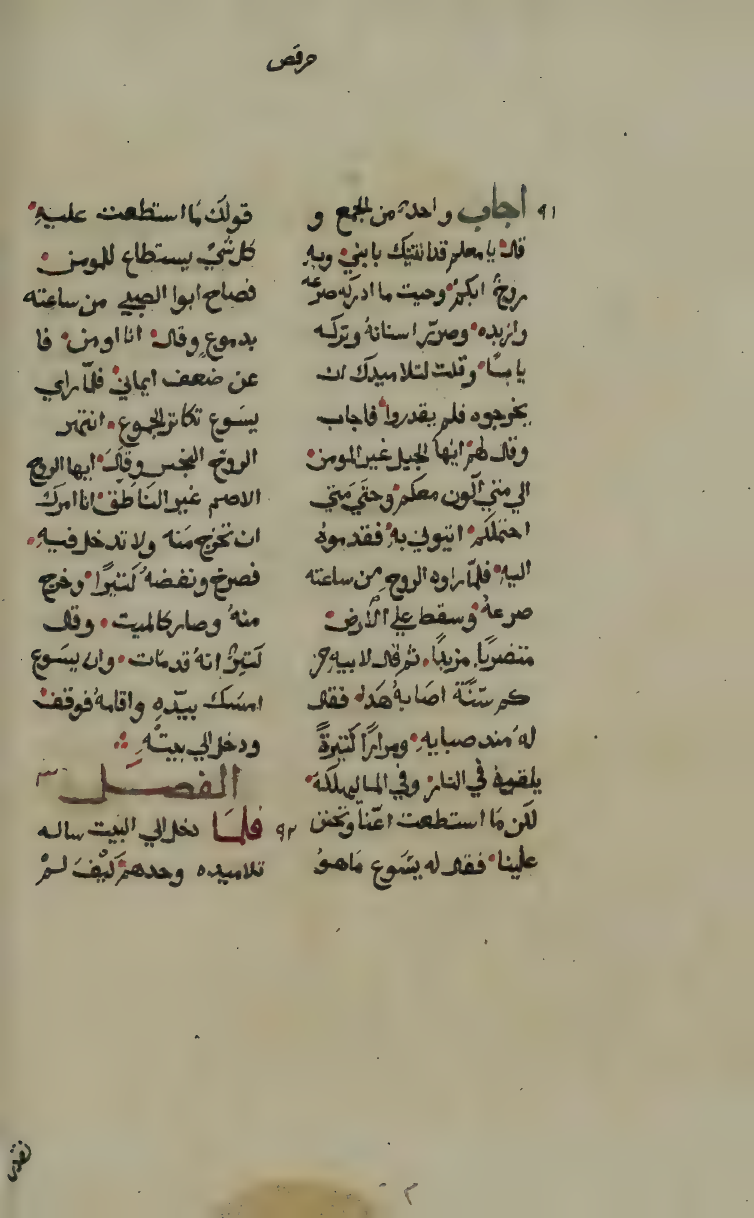 مرقص
٩١ اجاب واحد من الجمع و
قال يا معلم قد اتيتك بابني وبه
روح ابكم وحيت ما ادركه صرعه
وازبده وصرير اسنانه وتركه
يابسًا وقلت لتلاميدك ان
يخرجوه فلم يقدروا فاجاب
وقال لهم ايها الجيل غير المومن
الي متي اكون معكم وحتي متي
احتملكم اتيوني به فقدموه
اليه فلما راوه الروح من ساعته
صرعه وسقط علي الارض
مزبدًا ثم قال لابيه من
كم سنة اصابه هدا فقال
له مند صبايه ومرارًا كتيرةً
يلقوه في النار وفي الما ليهلكه
لكن ما استطعت اعنا وتحنن
علينا فقال له يسوع ما هو
قولك ما استطعت عليه
كل شي يستطاع للمومن
فصاح ابوا الصبي من ساعته
بدموع وقال انا اومن
عن ضعف ايماني فلما راي
يسوع تكاتر الجموع انتهر
الروح النجس وقال ايها الروح
الاصم غير الناطق انا امرك
ان تخرج منه ولا تدخل فيه
فصرخ ونفضه كتيرًا وخرج
منه وصار كالميت وقال
كتير انه قد مات وان يسوع
امسك بيده واقامه فوقف
ودخل الي بيته
الفصل
٩٢ فلما دخل الي البيت ساله
تلاميده وحدهم كيف لم